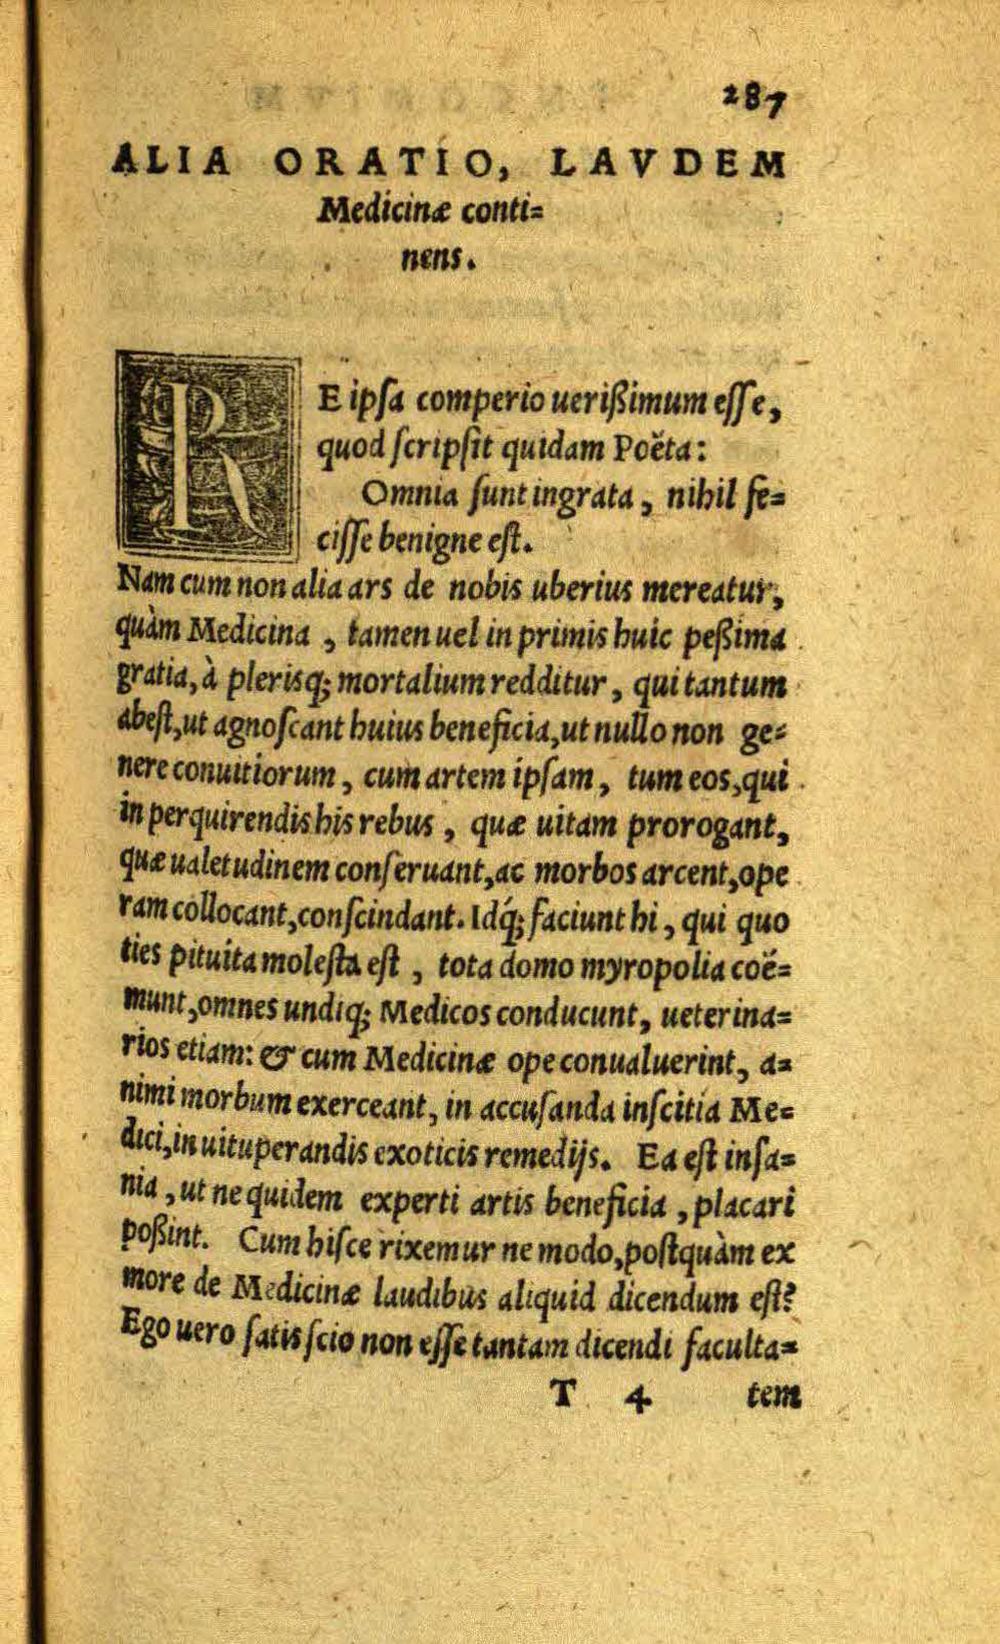 287
ALIA ORATIO, LAVDEM
Medicinæ conti=
nens.
RE ipſa comperio uerißimum eſſe,
quod ſcripſit quidam Poëta:
Omnia ſunt ingrata, nihil fe=
ciſſe benigne eſt.
Nam cum non alia ars de nobis uberius mereatur,
quàm Medicina, tamen uel in primis huic peßima
gratia, à plerisq; mortalium redditur, qui tantum
abeſt, ut agnoſcant huius beneficia, ut nullo non ge=
nere conuitiorum, cum artem ipſam, tum eos, qui
in perquirendis his rebus, quæ uitam prorogant,
quæ ualetudinem conſeruant, ac morbos arcent, ope
ram collocant, conſcindant. Idq́; faciunt hi, qui quo
ties pituita moleſta eſt, tota domo myropolia coë=
munt, omnes undiq; Medicos conducunt, ueterina=
rios etiam: & cum Medicinæ ope conualuerint, a=
nimi morbum exerceant, in accuſanda inſcitia Me=
dici, in uituperandis exoticis remedijs. Ea eſt inſa=
nia, ut ne quidem experti artis beneficia, placari
poßint. Cum hiſce rixemur ne modo, poſtquàm ex
more de Medicinæ laudibus aliquid dicendum eſt?
Ego uero ſatis ſcio non eſſe tantam dicendi faculta=
T 4 tem